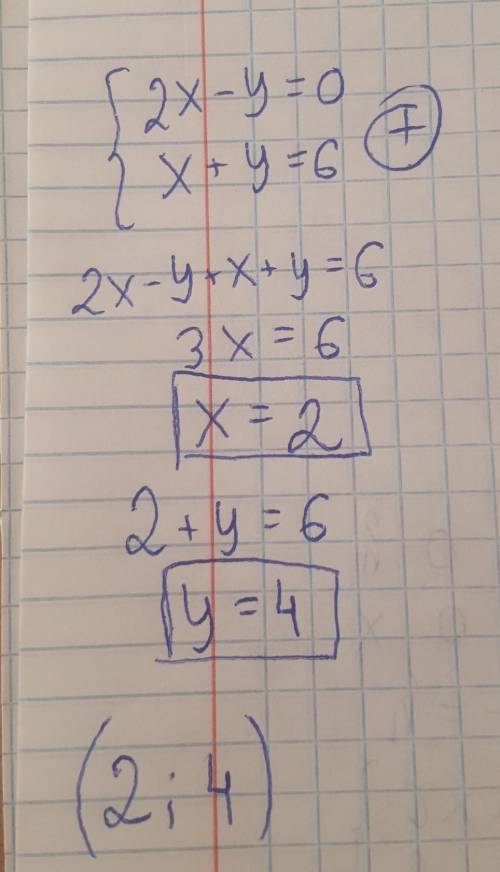 2x - y = 0
x + y = 6 +
2x - y + x + y = 6
3x = 6
x = 2
2 + y = 6
y = 4
(2; 4)